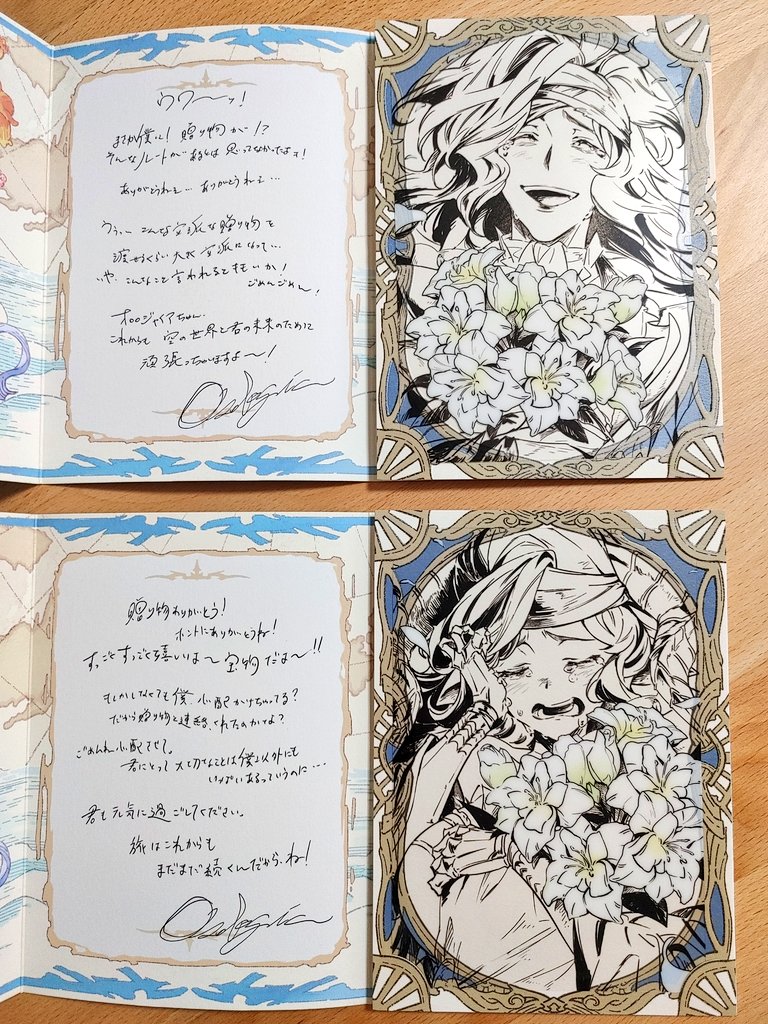 ウワ〜ッ!
まさか僕に!贈り物が!?
そんなルートがあるとは思ってなかったよォ!
ありがとうねェ… ありがとうねェ…
うぅ… こんな立派な贈り物を
渡せるくらい大水 立派になって…
いや、こんなこと言われるとキモいか!
ごめんごめ〜ん!
オロロジャイアちゃん、
これからも 空の世界と君の未来のために
頑張っちゃいますよ〜!
Orologia
贈り物ありがとう!
ホントにありがとうね!
すっごくすっごく嬉しいよ〜 宝物だよ〜!!
もしかしなくても僕、心配かけちゃってる?
だから贈り物と連絡くれたのかな?
ごめんね心配させて。
君にとって大切なことは僕以外にも
いっぱいあるっていうのに…
君も元気に過ごしてください。
旅はこれからも
まだまだ続くんだから、ね!
Orologia